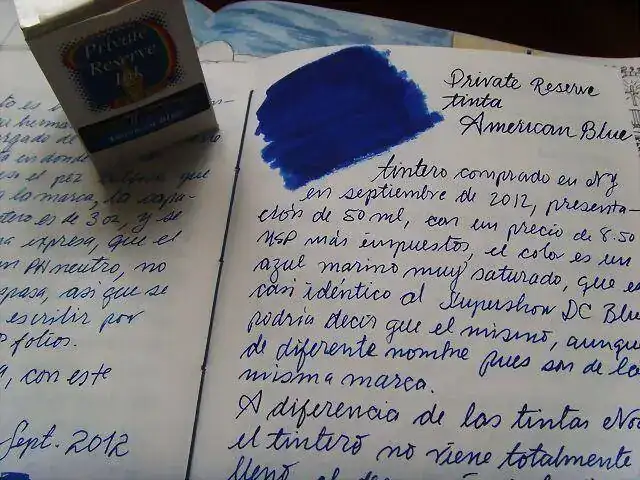 Private
Reserve
Ink
AMERICAN BLUE
to es
su herma
argado de
ta en donde
es el pez que
a la marca, la capa-
tero es de 3 oz, y se
na expresa, que el
un PH neutro, no
spasa, asi que se
escribir por
folios.
a, con este
Sept. 2012
Private Reserve
tinta
American Blue
tintero comprado en NY
en septiembre de 2012, presenta-
ción de 50 ml, con un precio de 8.50
más impuestos, el color es un
azul marino muy saturado, que es
casi idéntico al Supershow DC Blue
podría decir que el mismo, aunque
de diferente nombre pues son de la
misma marca.
A diferencia de las tintas
el tintero no viene totalmente
lleno